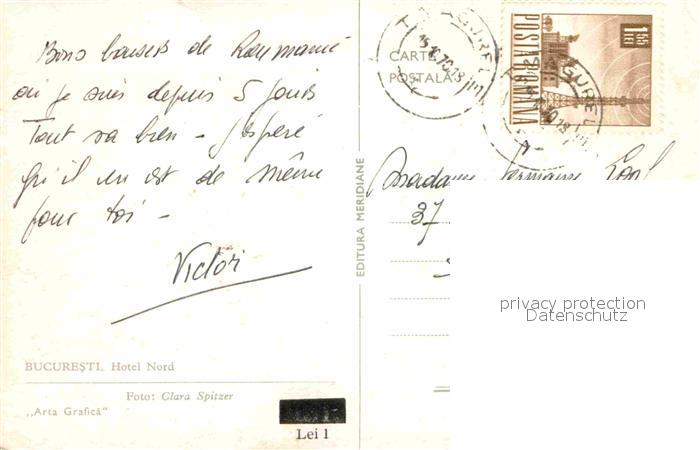 Bons baisers de Roumanie
où je suis depuis 5 jours
Tout va bien - J'espère
qu'il en est de même
pour toi -
Victor
BUCUREȘTI, Hotel Nord
Foto: Clara Spitzer
„Arta Grafică"
Lei 1
EDITURA MERIDIANE
CARTE
POȘTALĂ
POSTA ROMANA
1,55
LEI
Madame Germaine
37
privacy protection
Datenschutz